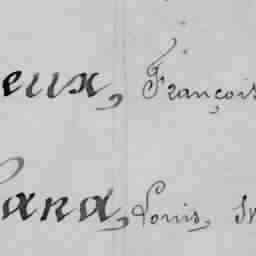 eux, François
ana, Louis,